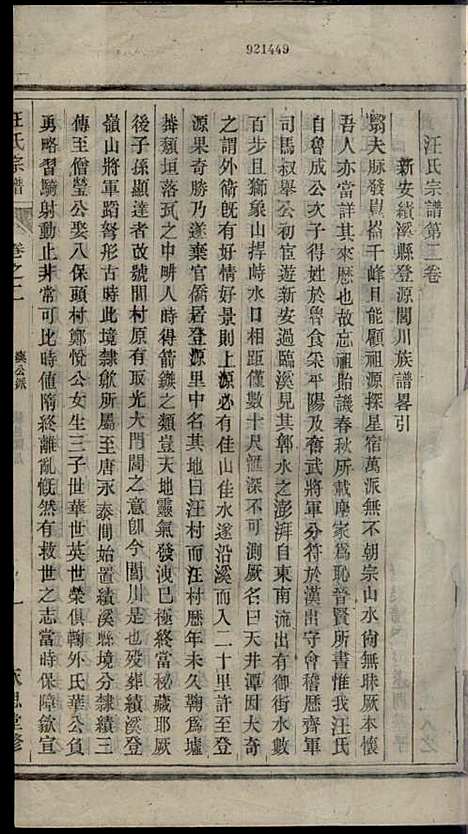 921449
汪氏宗譜第三卷
新安績溪縣登源閭川族譜畧引
翳夫脉發崑崙千峰且能顧祖源探星宿萬派無不朝宗山水尙無昧厥本懷
吾人亦當詳其來歷也故忘祖貽譏春秋所載麈家爲恥晉賢所書惟我汪氏
自魯成公次子得姓於魯食采平陽及奮武將軍分符於漢出守會稽歷齊軍
司馬叔舉公初宦遊新安過臨溪見其鄣水之澎湃自東南流出有御街水數
百步且獅象山捍峙水口相距僅數十尺滙深不可測厥名曰天井潭因大奇
之謂外衛旣有好景則上源必有佳山佳水遂沿溪而入二十里許至登
源果奇勝乃遂棄官僑居登源里中名其地曰汪村而汪村歷年未久鞠爲墟
莽頽垣落瓦之中畊人時得箭鏃之類豈天地靈氣發洩已極終當秘藏耶厥
後子孫顯達者改號閭村原有取光大門閭之意卽今閭川是也殁葬績溪登
嶺山將軍蹈弩形古時此境隸歙所屬至唐永泰間始置績溪縣境分隸績三
傳至僧瑩公娶八保頭村鄭悅公女生三子世華世英世榮俱鞠外氏華公負
勇略習騎射動止非常可比時値隋終離亂慨然有救世之志當時保障歙宣
汪氏宗譜
卷之三
越公派
一
承思堂修